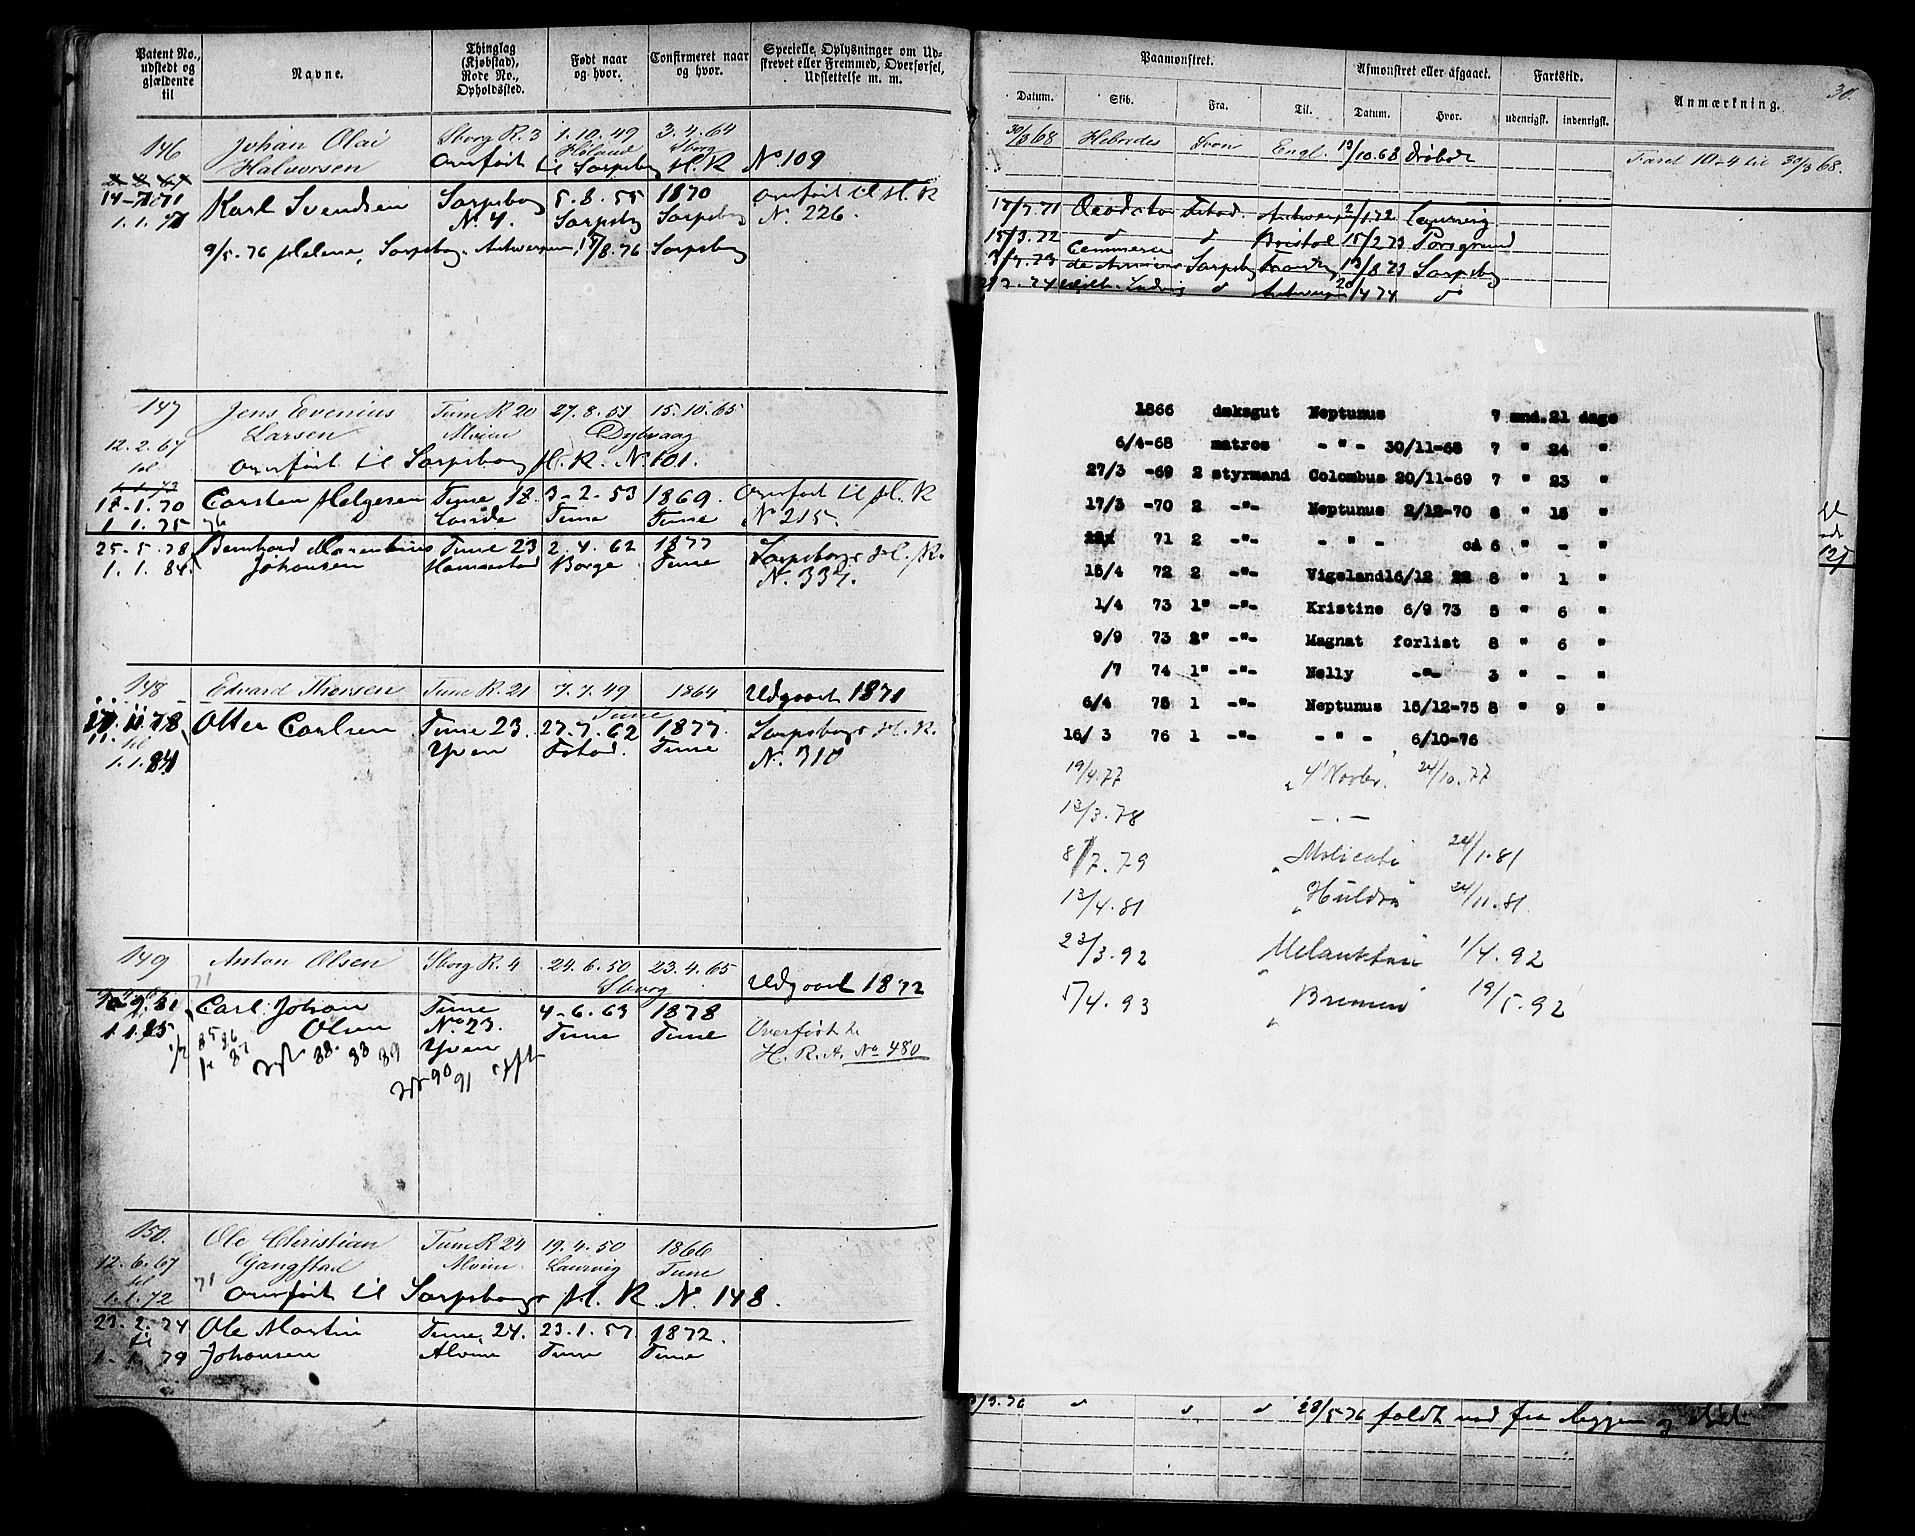 Patent No., udstedt og gjældende til
Navne.
Thinglag (Kjøbstad), Rode No., Opholdssted.
Født naar og hvor.
Confirmeret naar og hvor.
Specielle Oplysninger om Udskrevet eller Fremmed, Overførsel, Udslettelse m. m.
146 Johan Olai Sborg R. 3 1.10.49 3.4.64
Halvorsen Høland Sborg
Overført til Sarpsborg H. R. No 109
14-7-71 Karl Svendsen Sarpsborg 5.8.55 1870 Overført til H. R
1.1.77 No. 4. Sarpsbg Sarpsborg N. 226.
9/5.76 Helene, Sarpsborg. Antwerpen 17/8.76 Sarpsborg
147 Jens Evenius Tune R 20 27.8.51 15.10.65
12.2.67 Larsen Alvim Dybvaag
til Overført til Sarpsborg H. R. N. 101.
1.1.73
17-1.70 Carsten Helgesen Tune 18. 3-2.53 1869. Overført til H. R
1.1.75 76 Lande Tune Tune N. 215.
25-5.78 Bernhard Marentius Tune 23 2.4.62 1877 Sarpsborgs H. R.
1.1.84 Johansen Hannestad Borge Tune N. 337.
148 Edvard Thorsen Tune R. 21 7.7.49 1864 Udgaaet 1871
Tune
11.78 Otter Carlsen Tune 23. 27.7.62 1877 Sarpsborgs H. R.
til Yven Fstad. Tune N. 310
1.1.84
149 Anton Olsen Sborg R. 4 24.6.50 23.4.65 Udgaaet 1872
71 Sborg
Carl Johan Tune 4-6.63 1878 Overført til
1.1.85 Olsen No. 23. Tune Tune H. R. A. No 480
Yven
85 86
87 88. 89
90 91
150. Ole Christian Tune R 24 19.4.50 1866
12.6.67 Gangstad Alvim Laurvig Tune
til 71
1.1.72 Overført til Sarpsborgs H. R. N. 148.
23.2.74 Ole Martin Tune, 24. 23.1.57 1872.
til
1-1.79 Johansen Alvim Tune Tune
30.
Paamønstret.
Afmønstret eller afgaaet.
Fartstid.
Anmærkning.
Datum. Skib. Fra. Til. Datum. Hvor. udenrigsk. indenrigsk.
30/3 68 Hebrides Engl. 13/10.68 Drøbak Faret 10-4 til 30/3 68.
17/7.71 Fstad. Antwerpen 2/1.72 Laurvig
15/3.72 " " Bristol 15/2 73 Porsgrund
Commerce
Sarpsbg 13/8.73 Sarpsbg
Ludvig " Antwerpen 20/4 74 "
1866 dæksgut Neptunus 7 mnd. 21 dage
6/4-68 matros - " - 30/11-68 7 " 24 "
27/3 -69 2 styrmand Colombus 20/11-69 7 " 23 "
17/3 -70 2 -"- Neptunus 2/12-70 8 " 15 "
71 2 -"- - " - cá 6 " - "
15/4 72 2 -"- Vigeland 16/12 22 8 " 1 "
1/4 73 1" -"- Kristine 6/9 73 5 " 6 "
9/9 73 2" -"- Magnat forlist 8 " 6 "
/7 74 1" -"- Nelly -"- 3 " - "
6/4 75 1 -"- Neptunus 15/12-75 8 " 9 "
16/ 3 76 1 -"- - " - 6/10-76
19/4.77 24/10.77
13/3.78 - . -
8/7.79 24/1.81
13/4.81 "Huldra" 24/11.81.
23/3.92 1/4.92
5/4.93 "Bremen" 19/5.92
127
28/5 76 faldt ned fra Riggen og